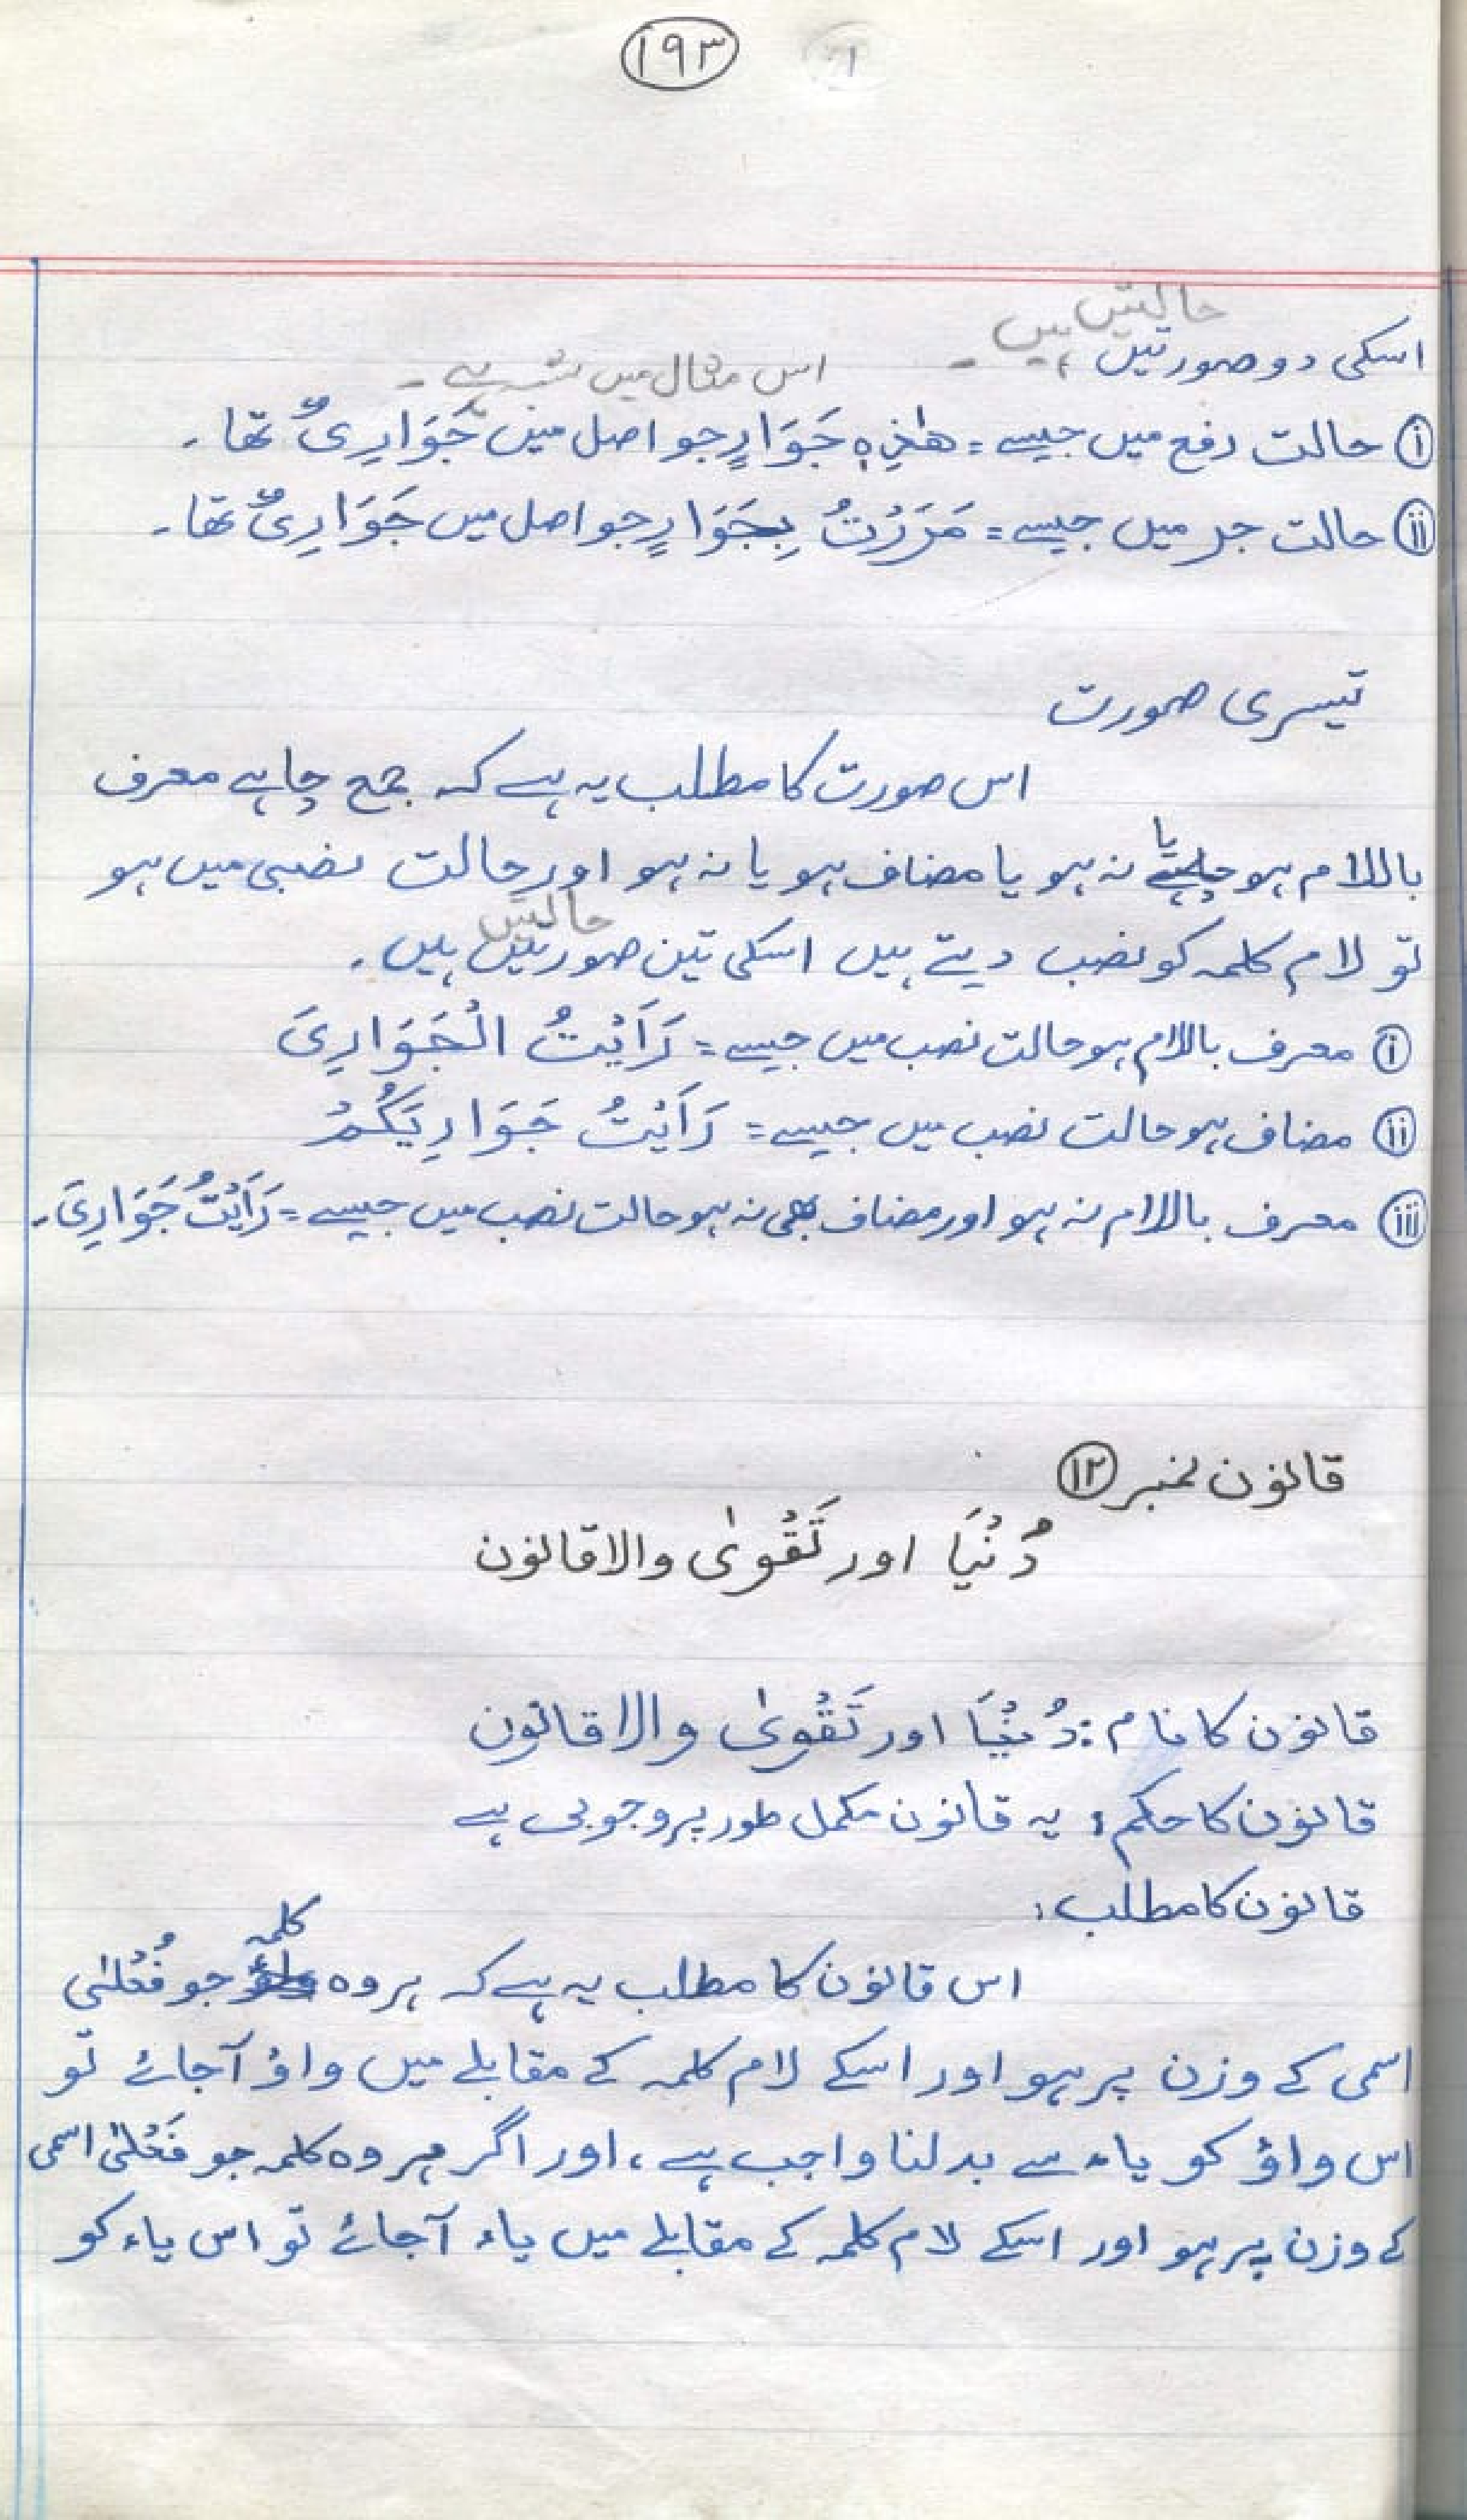 ۱۹۳
حالتیں ہیں۔
اسکی دو صورتیں ہیں
اس مثال میں شبہ ہے۔
(i) حالت رفع میں جیسے = هٰذِهٖ جَوَارٍ جو اصل میں جَوَارِیٌ تھا۔
(ii) حالت جر میں جیسے = مَرَرْتُ بِجَوَارٍ جو اصل میں جَوَارِیٌ تھا۔
تیسری صورت
اس صورت کا مطلب یہ ہے کہ جمع چاہے معرف
باللام ہو یا نہ ہو یا مضاف ہو یا نہ ہو اور حالت نصبی میں ہو
حالتیں
تو لام کلمہ کو نصب دیتے ہیں اسکی تین صورتیں ہیں۔
(i) معرف باللام ہو حالت نصب میں جیسے = رَاَیْتُ الْجَوَارِیَ
(ii) مضاف ہو حالت نصب میں جیسے = رَاَیْتُ جَوَارِیَکُمْ
(iii) معرف باللام نہ ہو اور مضاف بھی نہ ہو حالت نصب میں جیسے = رَاَیْتُ جَوَارِیَ۔
قانون نمبر (۱۲)
دُنْیَا اور تَقْوٰی والا قانون
قانون کا نام: دُنْیَا اور تَقْوٰی والا قانون
قانون کا حکم: یہ قانون مکمل طور پر وجوبی ہے
قانون کا مطلب:
اس قانون کا مطلب یہ ہے کہ ہر وہ کلمہ جو فُعْلٰی
اسمی کے وزن پر ہو اور اسکے لام کلمہ کے مقابلے میں واؤ آجائے تو
اس واؤ کو یاء سے بدلنا واجب ہے، اور اگر ہر وہ کلمہ جو فَعْلٰی اسمی
کے وزن پر ہو اور اسکے لام کلمہ کے مقابلے میں یاء آجائے تو اس یاء کو